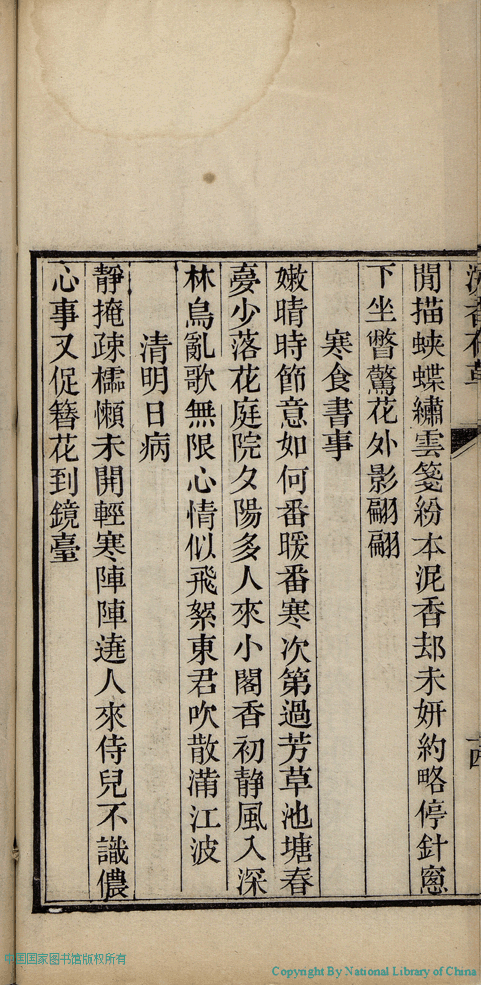 閒描蛺蝶繡雲箋粉本泥香却未妍約略停針窻
下坐瞥驚花外影翩翩
寒食書事
嫩晴時節意如何番暖番寒次第過芳草池塘春
夣少落花庭院夕陽多人來小閣香初静風入深
林鳥亂歌無限心情似飛絮東君吹散滿江波
清明日病
靜掩疎櫺懶未開輕寒陣陣遶人來侍兒不識儂
心事又促簪花到鏡臺
中国国家图书馆版权所有
Copyright By National Library of China